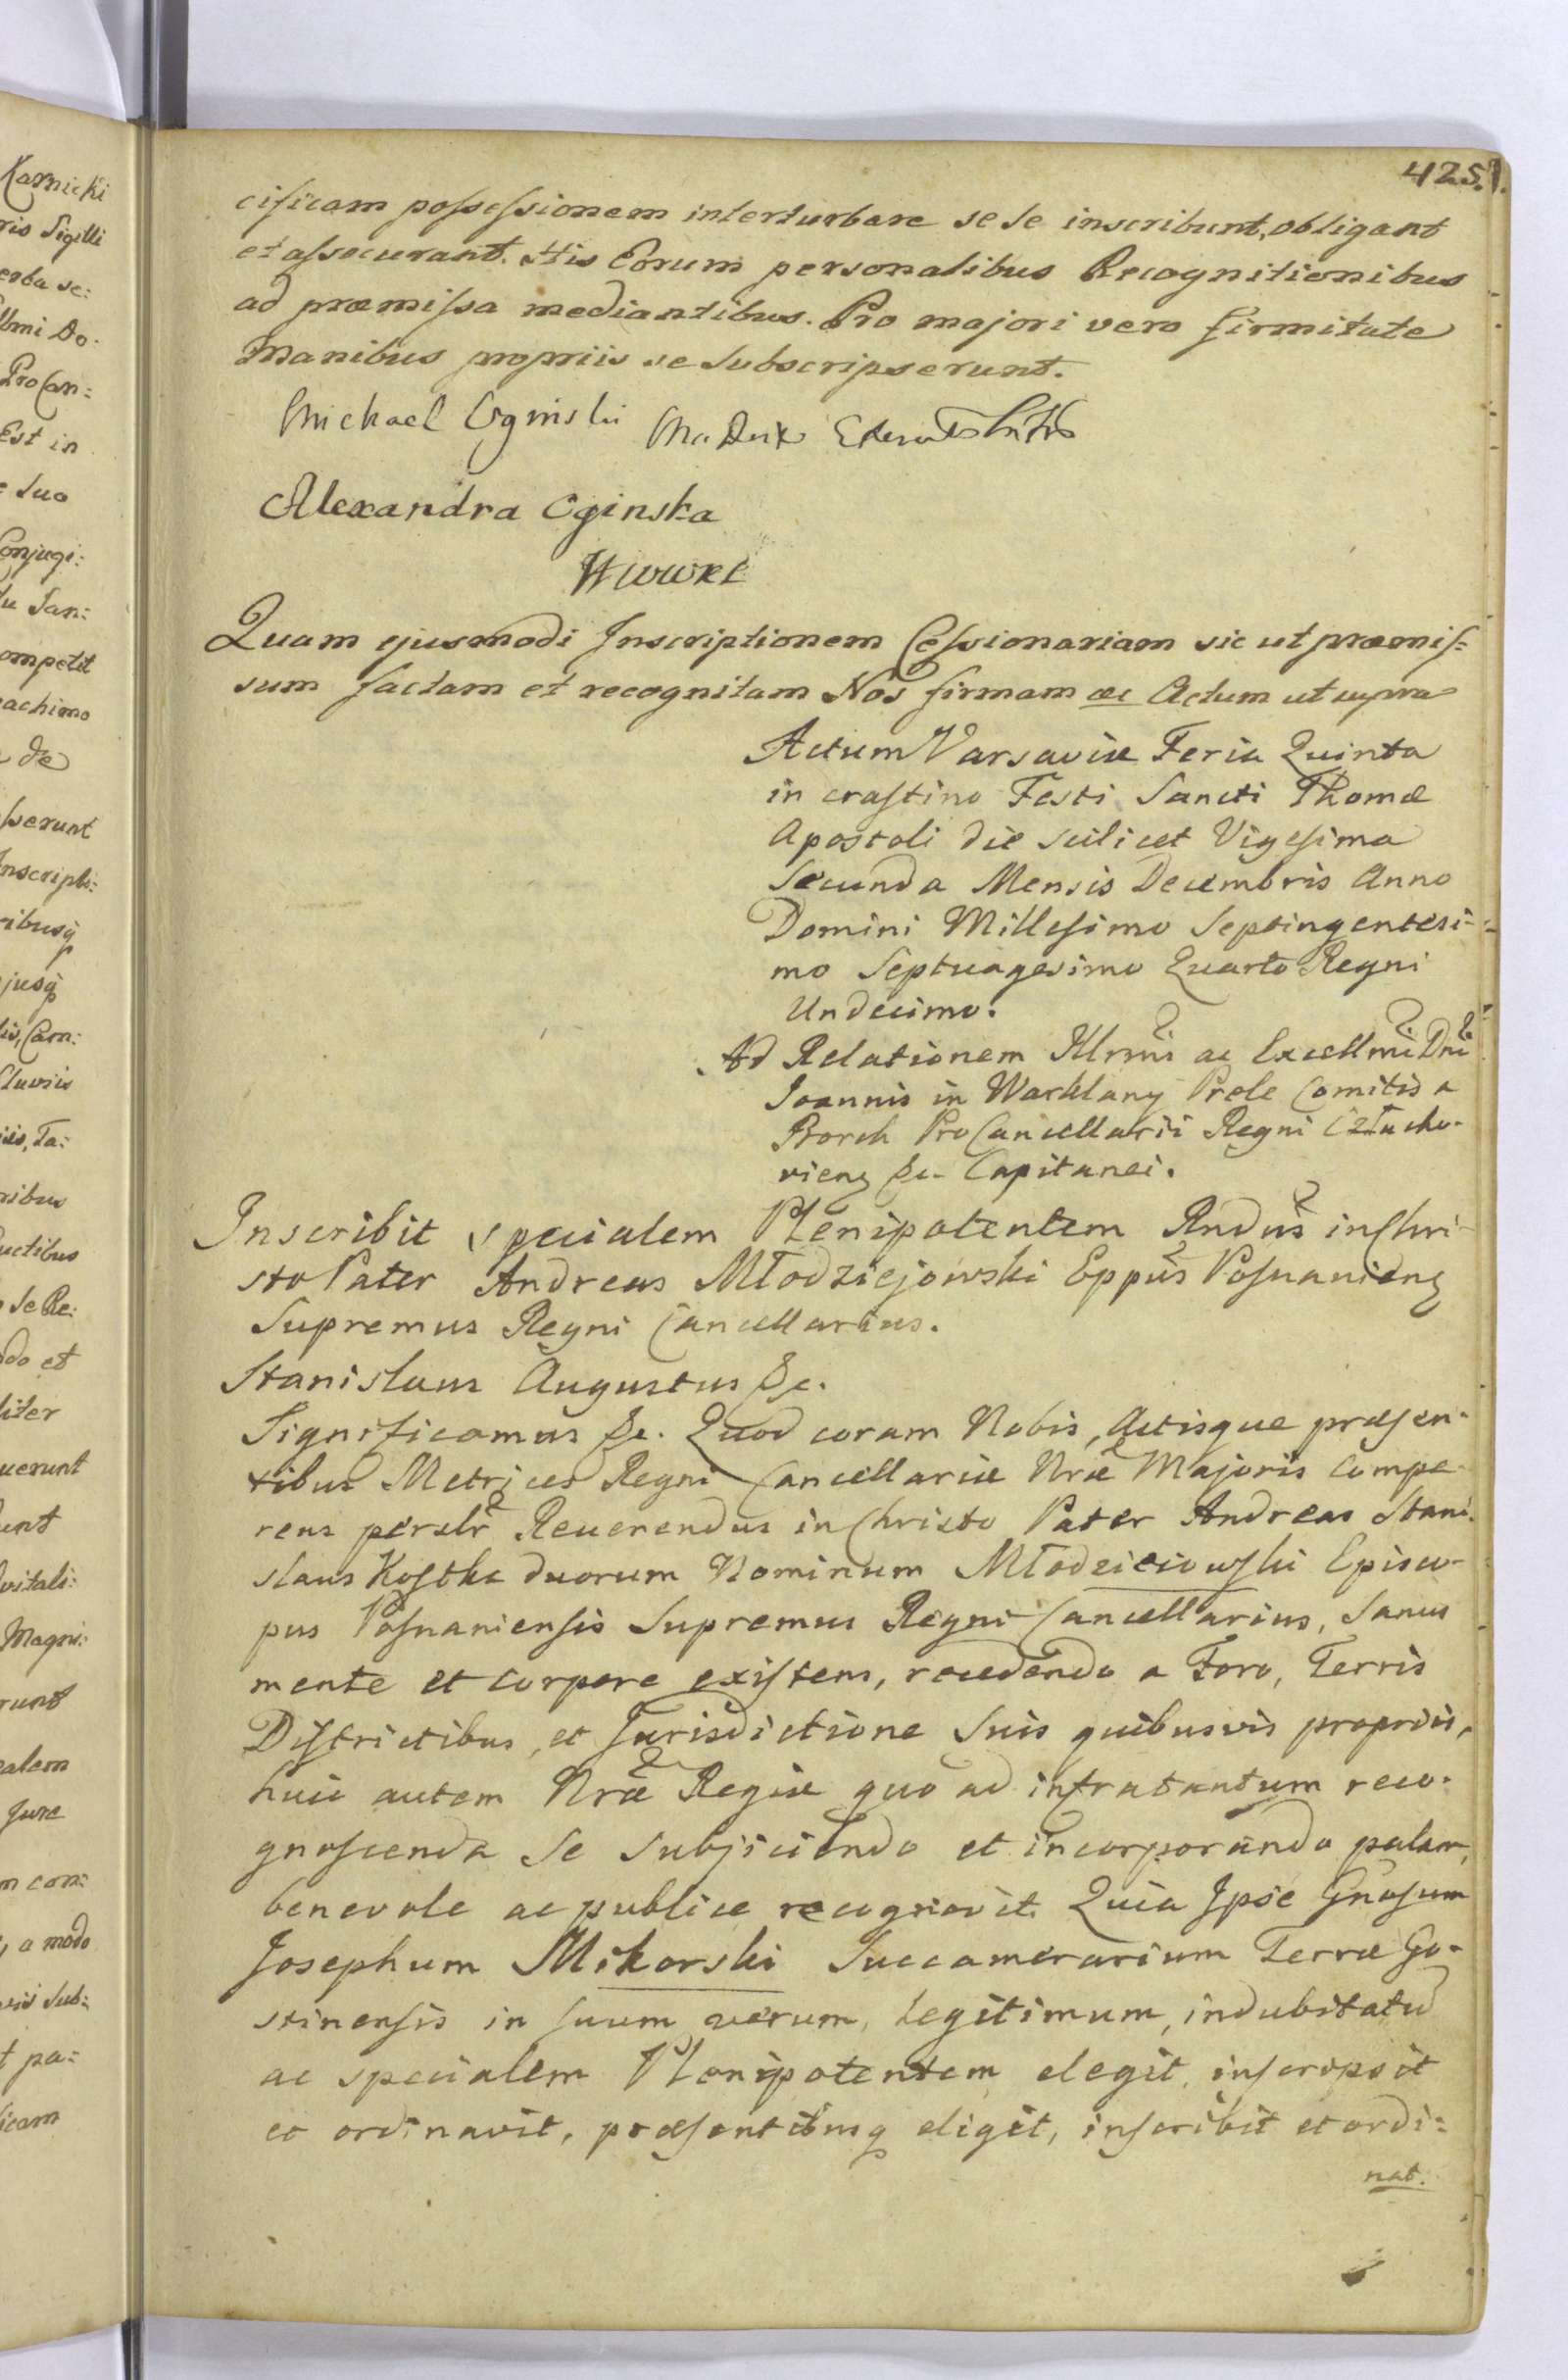 425.
cificam possessionem interturbare se se inscribunt, obligant
et assecurant. His Eorum personalibus Recognitionibus
ad præmissa mediantibus. Pro majori vero firmitate
Manibus propriis se subscripserunt.
Michael Oginski
Alexandra Oginska
Quam ejusmodi Inscriptionem Cessionariam sic ut præmis=
sum factam et recognitam Nos firmam &c Actum ut supra
Actum Varsaviæ Feria Quinta
in crastino Festi Sancti Thomæ
Apostoli die scilicet Vigesima
Secunda Mensis Decembris Anno
Domini Millesimo Septingentesi-
mo Septuagesimo Quarto Regni
Undecimo.
Ad Relationem Illrmi ac Excellmi Dni
Joannis in Warklany Prele Comitis a
Borch ProCancellarii Regni
&c. Capitanei.
Inscribit specialem Plenipotentem Rndus in Chri-
sto Pater Andreas Młodziejowski Eppus Posnanieng
Supremus Regni Cancellarius.
Stanislaus Augustus &c.
Significamus &c. Quod coram Nobis, Actisque præsen-
tibus Metrices Regni Cancellariæ Nræ Majoris compa-
rens perslr Reverendus in Christo Pater Andreas Stani-
slaus Kostka duorum Nominum Młodzieiowski Episco-
pus Posnaniensis Supremus Regni Cancellarius, Sanus
mente et corpore existens, recedendo a Foro, Terris
Districtibus, et Jurisdictione Suis quibusvis propriis,
huic autem Nræ Regiæ quo ad infra tantum reco-
gnoscenda Se Subjiciendo et incorporando palam,
benevole ac publice recognovit. Quia Ipse Gnosum
Josephum Mikorski Succamerarium Terræ Go-
stinensis in suum verum, legitimum, indubitatu
ac specialem Plenipotentem elegit, inscripsit
et ordinavit, præsentibusq eligit, inscribit et ordi=
nat.